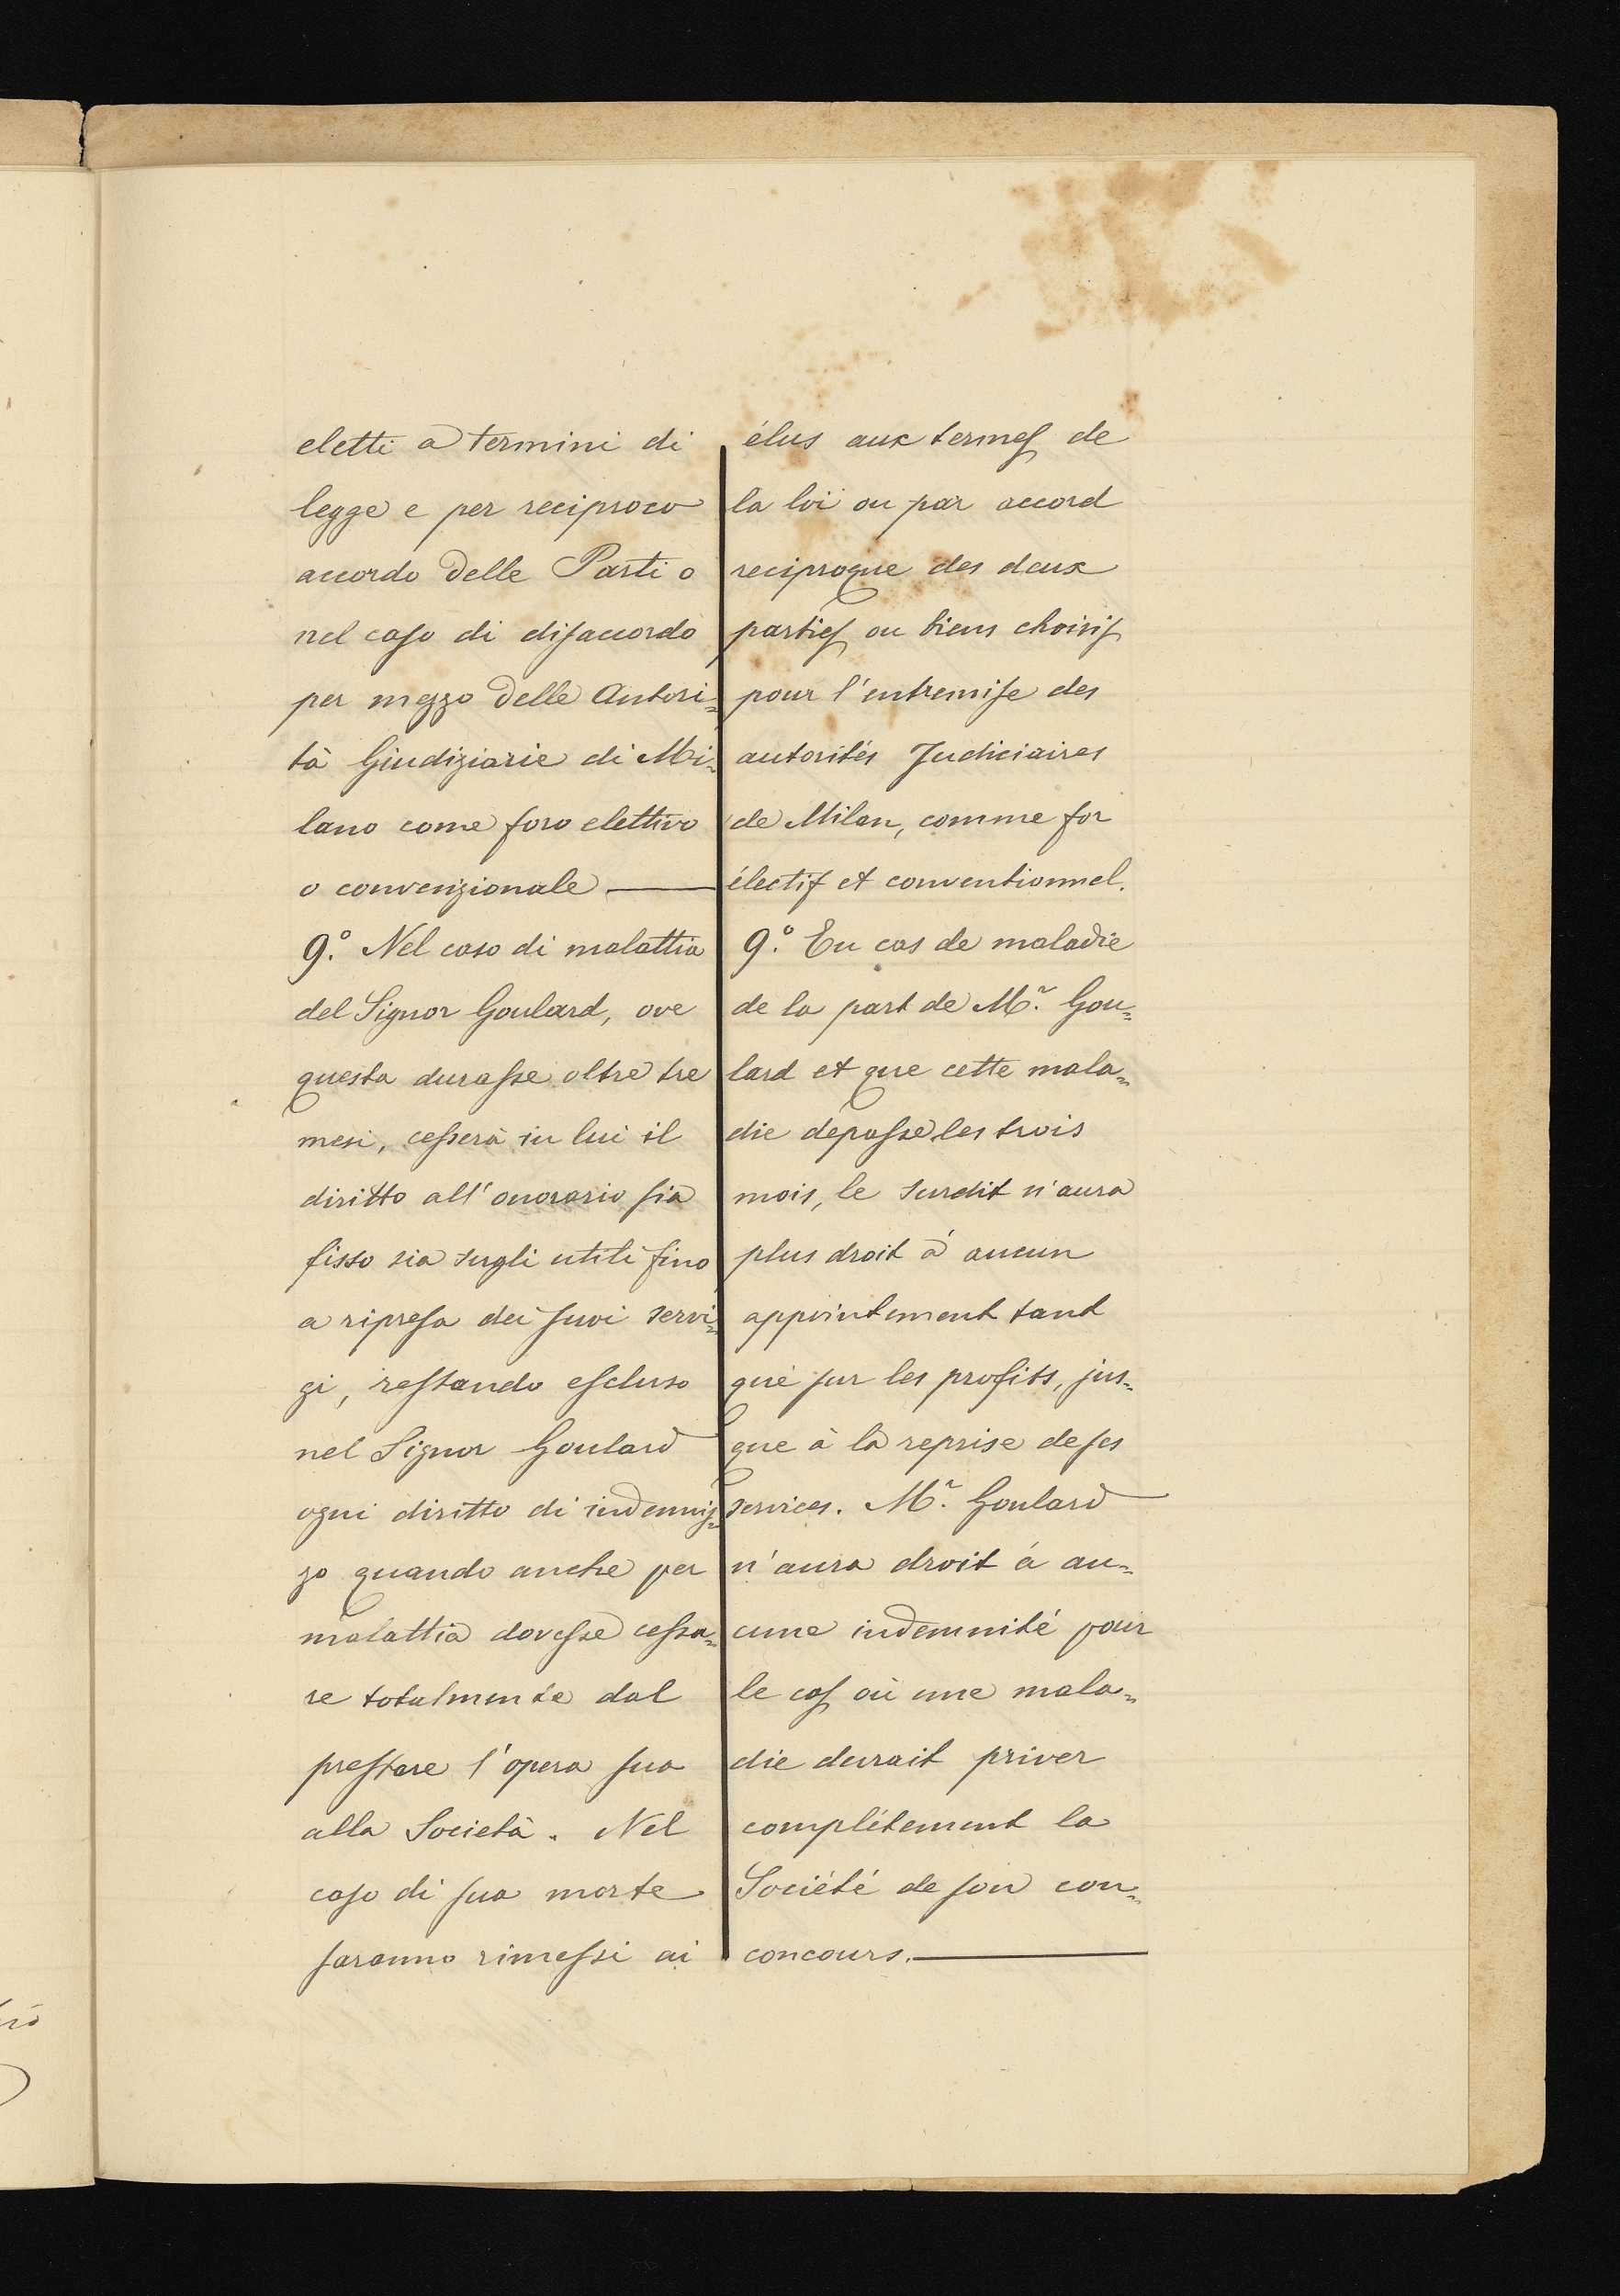 eletti a termini di
legge e per reciproco
accordo delle Parti o
nel caso di disaccordo
per mezzo delle Autori=
tà Giudiziarie di Mi=
lano come foro elettivo
o convenzionale
9.º Nel caso di malattia
del Signor Goulard, ove
questa durasse oltre tre
mesi, cesserà in lui il
diritto all'onorario sia
fisso sia sugli utili fino
a ripresa dei suoi servi=
gi, restando escluso
nel Signor Goulard
ogni diritto di indenniz=
zo quando anche per
malattia dovesse cessa=
re totalmente dal
prestare l'opera sua
alla Società. Nel
caso di sua morte
saranno rimessi ai
élus aux termes de
la loi ou par accord
reciproque des deux
parties ou biens choisis
pour l'entremise des
autorités Judiciaires
de Milan, comme for
électif et conventionnel.
9.º En cas de maladie
de la part de M.r Gou=
lard et que cette mala=
die depasse les trois
mois, le surdit n'aura
plus droit à aucun
appointement tant
que sur les profits, jus=
que à la reprise de ses
services. M.r Goulard
n'aura droit à au=
cune indemnité pour
le cas où une mala=
die durait priver
complétement la
Société de son con=
concours.